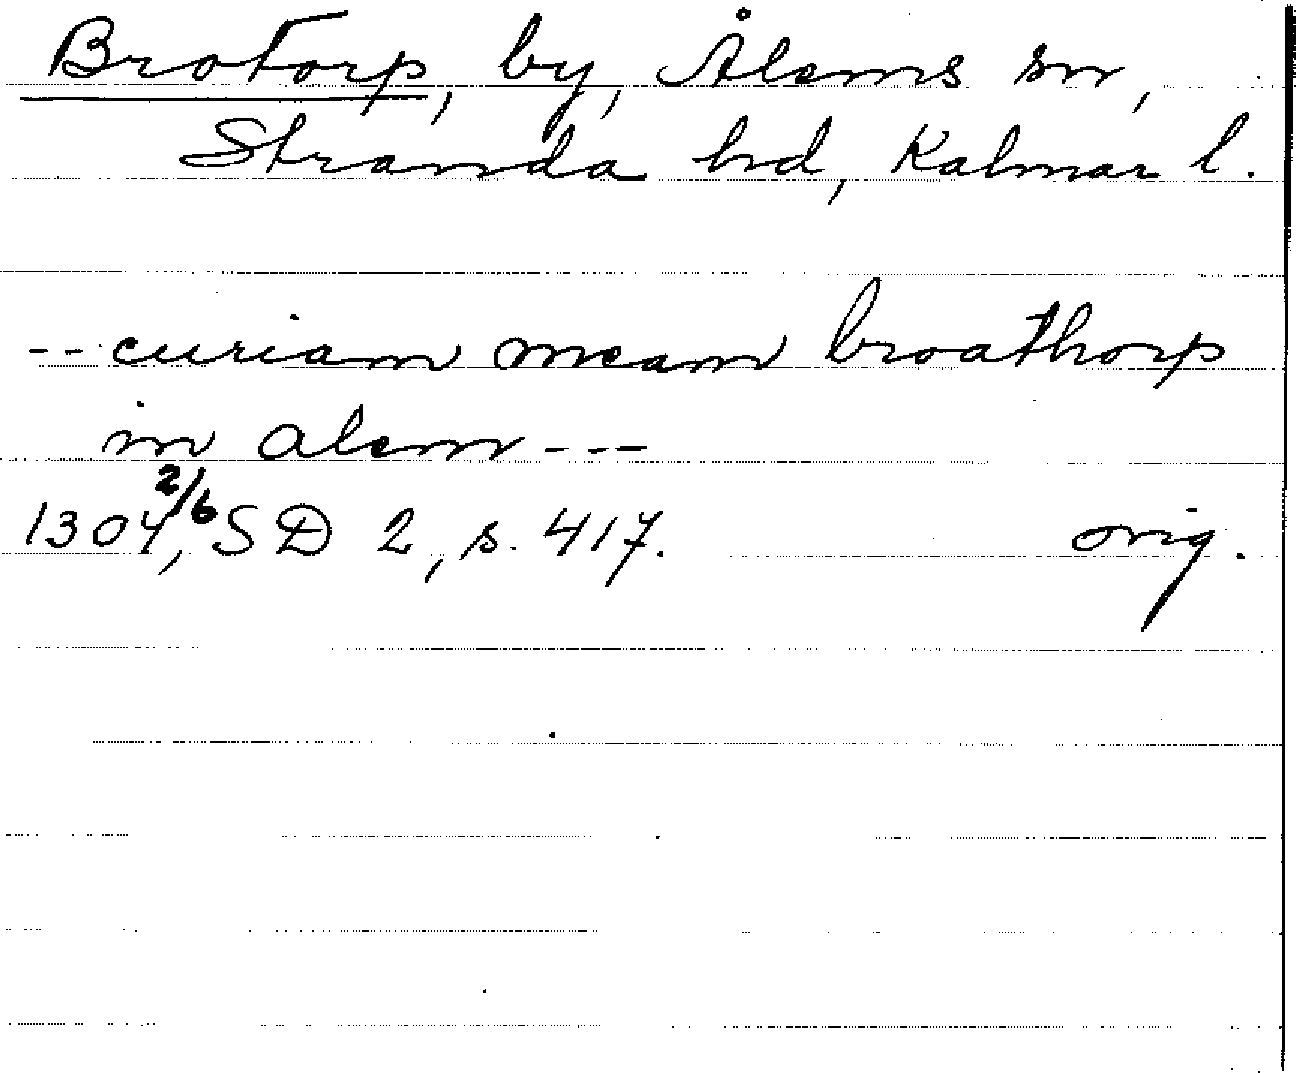 Brotorp, by, Ålems sn,
Stranda hd, Kalmar l.
-- curiam meam broathorp
in alem ---
1304, 2/6 SD 2, s. 417. orig.